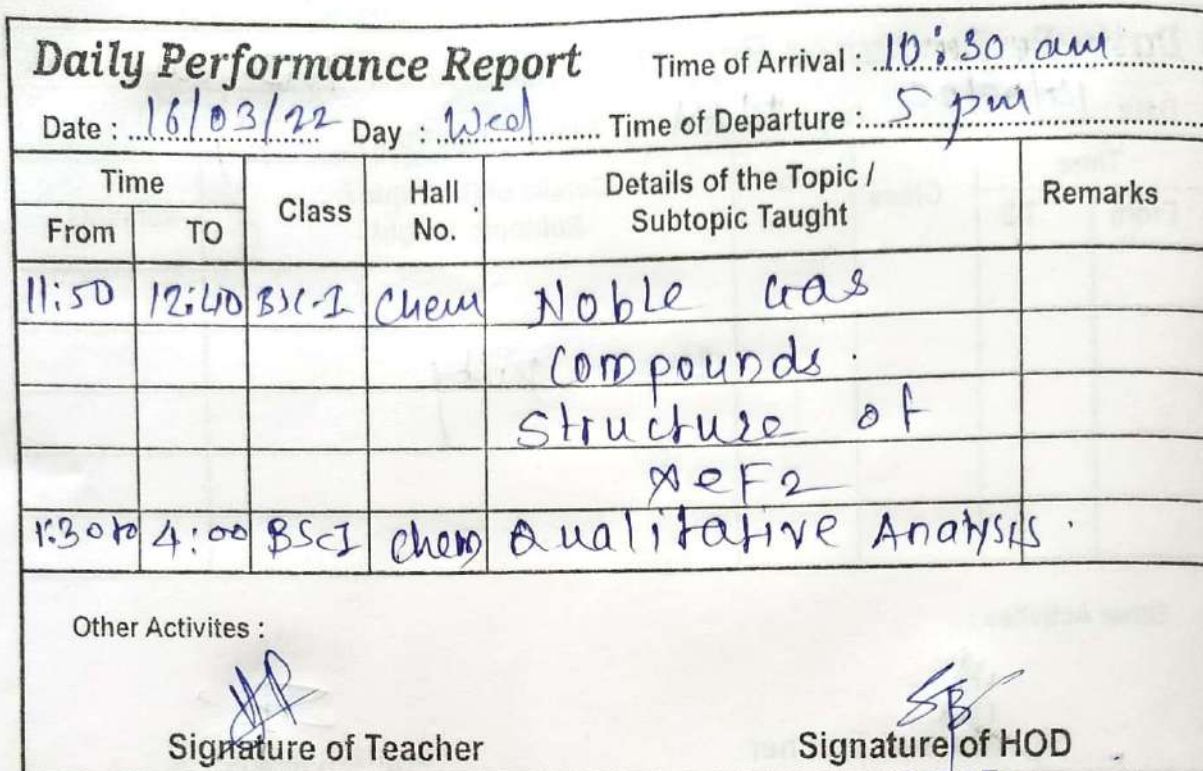 Daily Performance Report Time of Arrival : 10:30 am
Date : 16/03/22 Day : Wed Time of Departure : 5 pm
Time Class Hall No. Details of the Topic / Subtopic Taught Remarks
From TO
11:50 12:40 BSC-I Chem Noble Gas
Compounds.
Structure of
XeF2
1:30 to 4:00 BScI Chem Qualitative Analysis.
Other Activites :
Signature of Teacher Signature of HOD